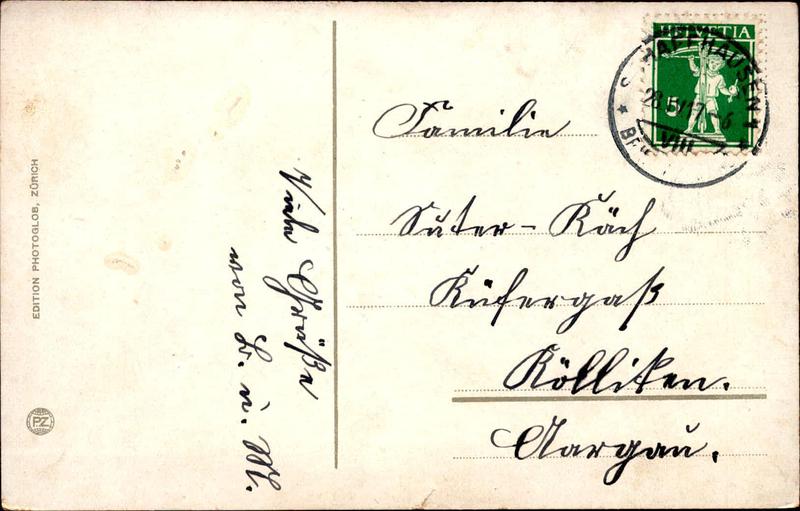 EDITION PHOTOGLOB, ZÜRICH
PZ
Viele Grüße
von L. u. M.
HELVETIA
SCHAFFHAUSEN 1
28.IV.17
VIII
Familie
Suter-Käch
Küfergaß
Kölliken.
Aargau.